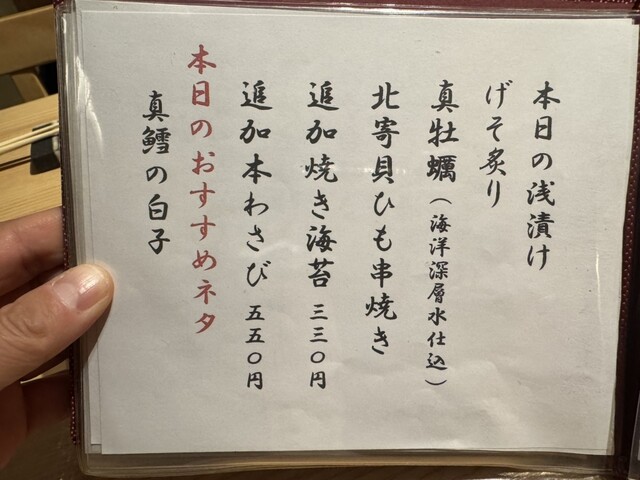 本日の浅漬け
げそ炙り
真牡蠣（海洋深層水仕込）
北寄貝ひも串焼き
追加焼き海苔 三三〇円
追加本わさび 五五〇円
本日のおすすめネタ
真鱈の白子